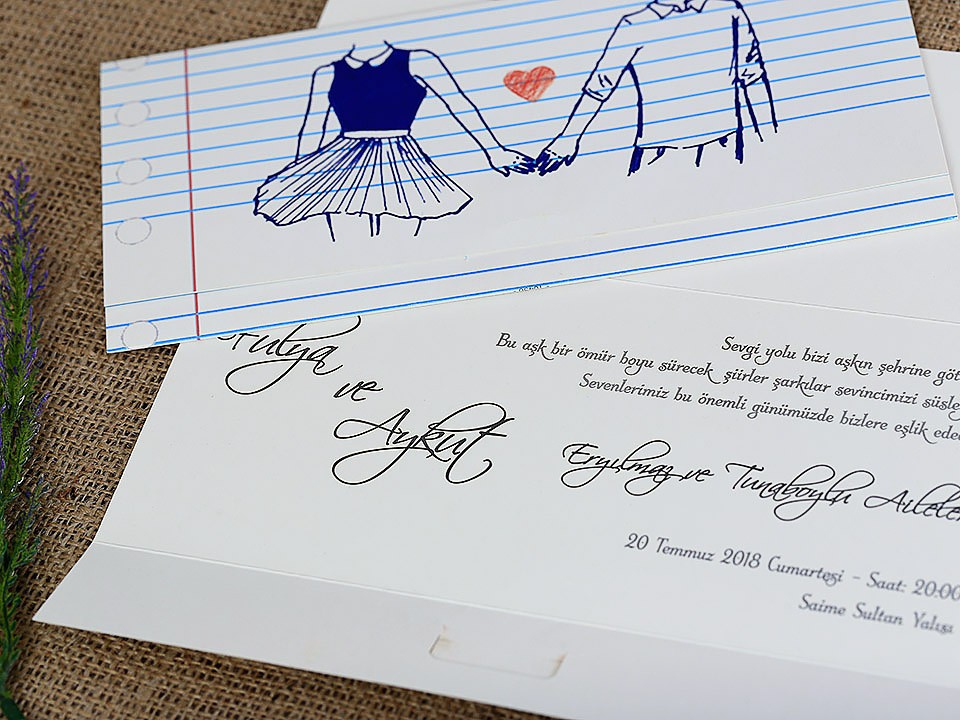 Fulya
ve
Aykut
Sevgi yolu bizi aşkın şehrine göt
Bu aşk bir ömür boyu sürecek şiirler şarkılar sevincimizi süsle
Sevenlerimiz bu önemli günümüzde bizlere eşlik ede
Eryılmaz ve Tunaboylu Aileler
20 Temmuz 2018 Cumartesi - Saat: 20:00
Saime Sultan Yalısı